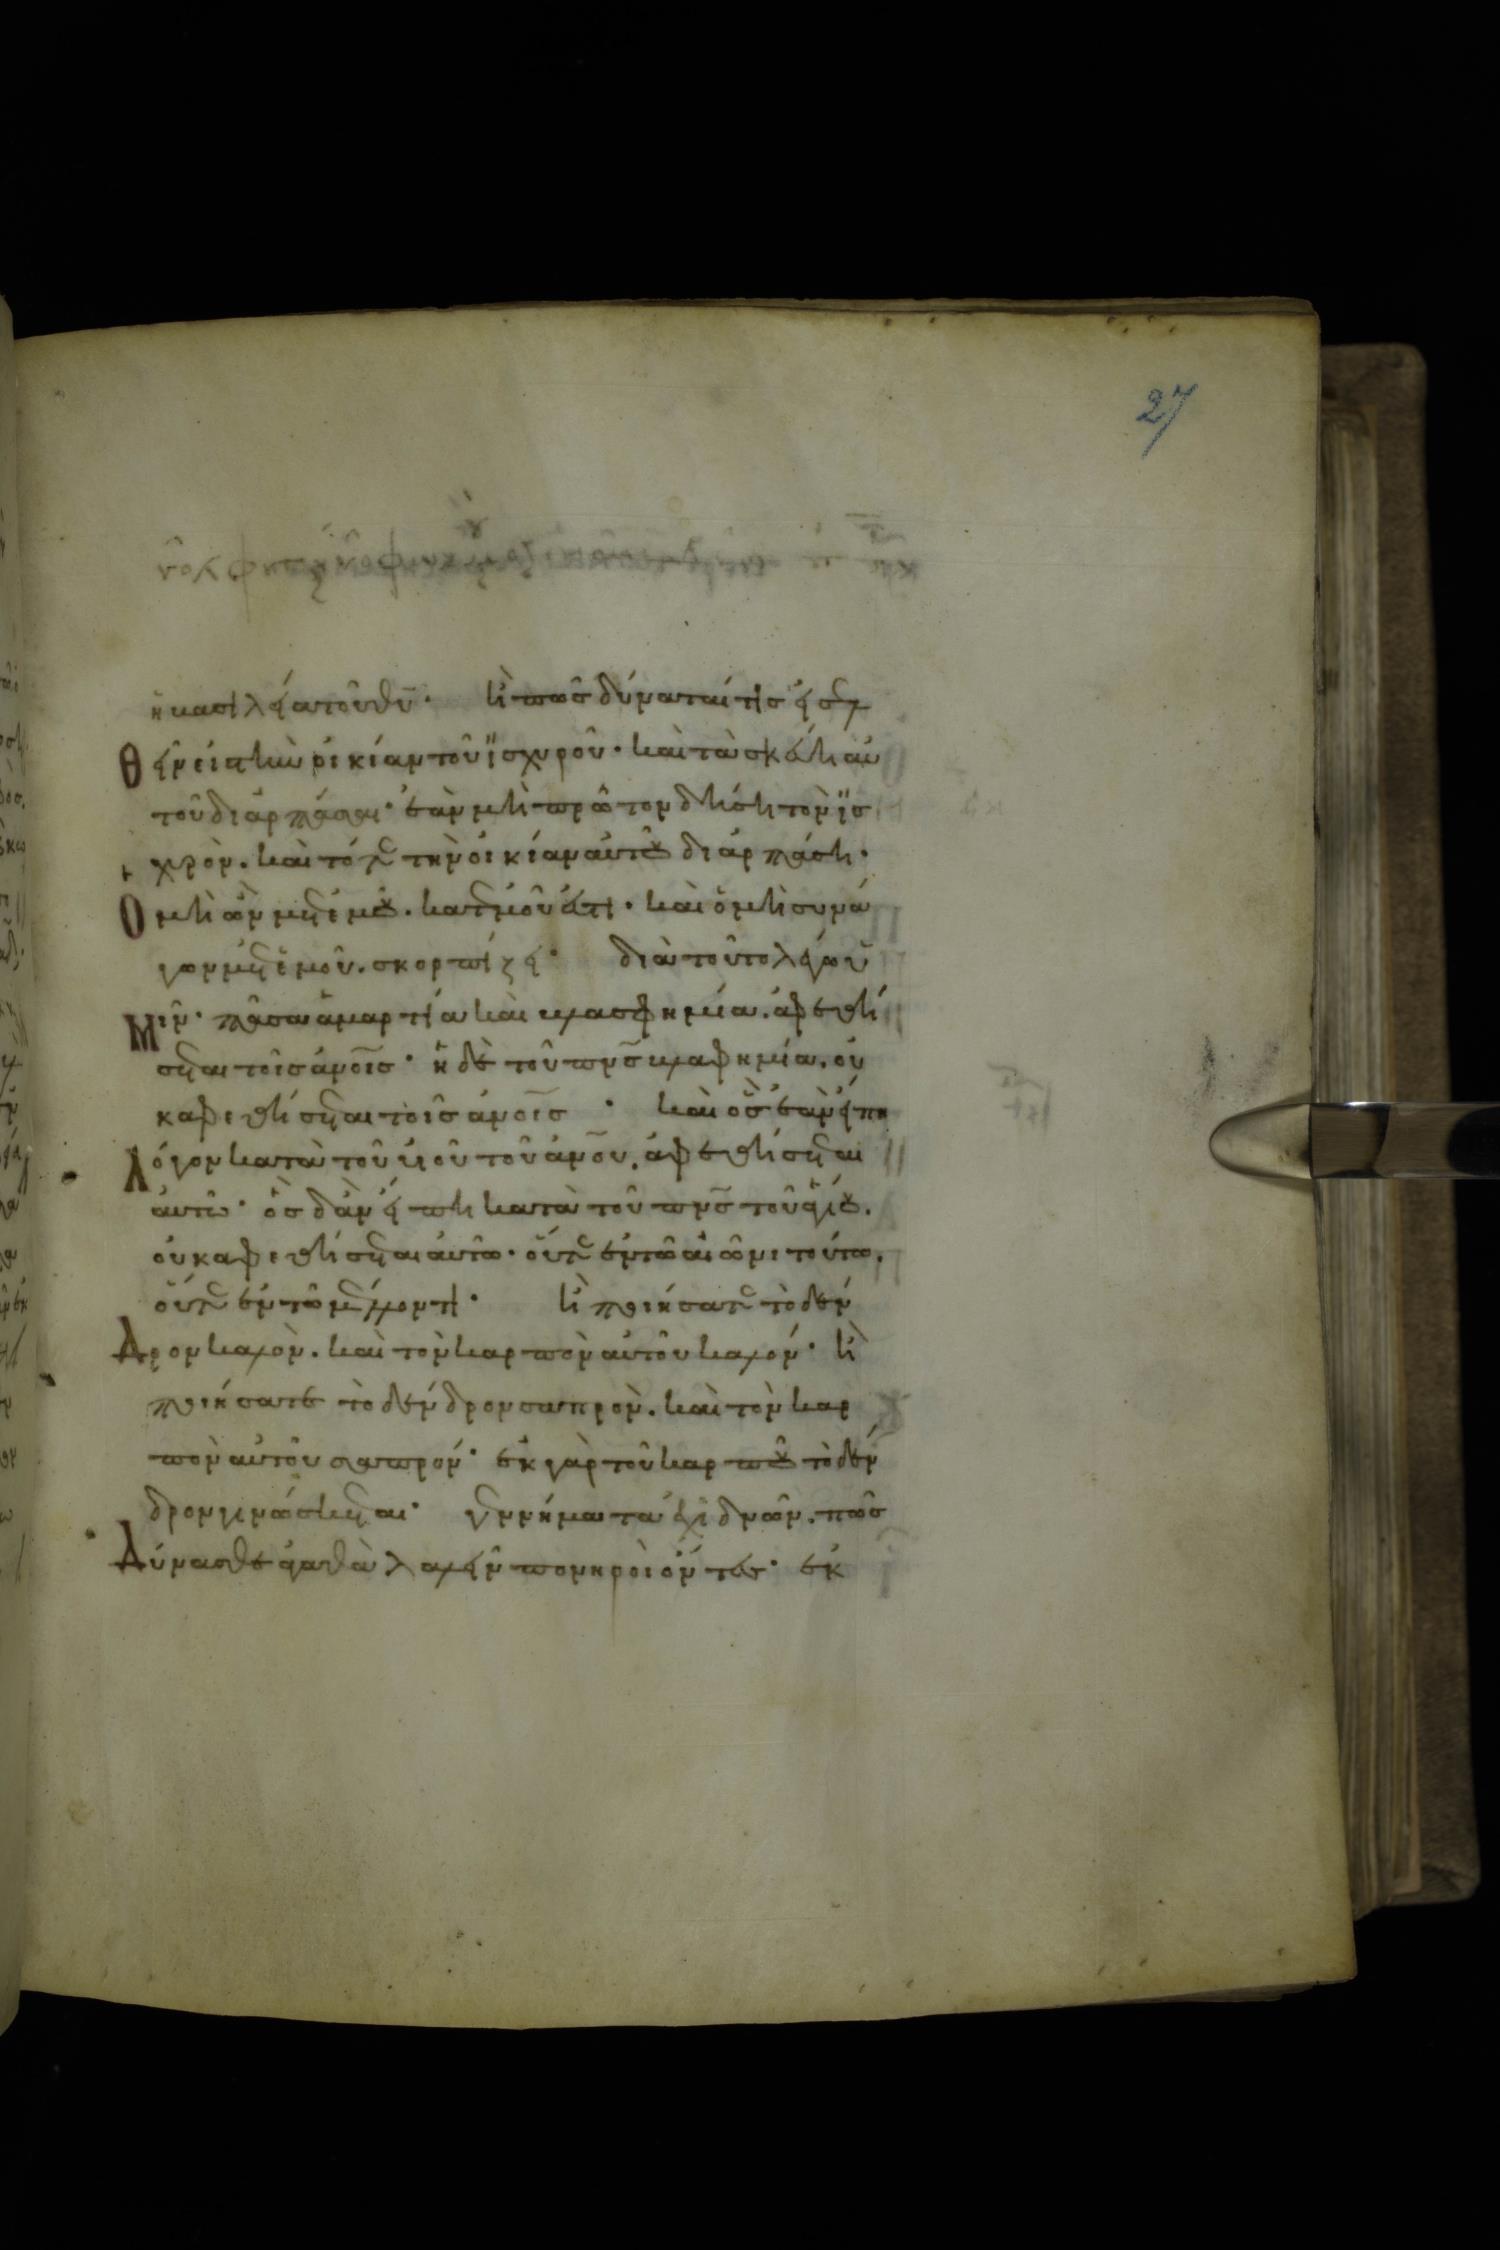 27
ἡ βασιλεία τοῦ θυ̅· ἢ πῶς δύναταί τις εἰσελ
θεῖν εἰς τὴν οἰκίαν τοῦ ἰσχυροῦ· καὶ τὰ σκεύη αὐ
τοῦ διαρπάσαι· ἐὰν μὴ πρῶτον δήσῃ τὸν ἰσ
χυρὸν. καὶ τότε τὴν οἰκίαν αὐτοῦ διαρπάσῃ·
Ὁ μὴ ὢν μετ ἐμοῦ. κατ ἐμοῦ ἐστι· καὶ ὁ μὴ συνά
γων μετ ἐμοῦ. σκορπίζει· διὰ τοῦτο λέγω ὑ
Μῖν· πᾶσα ἁμαρτία καὶ βλασφημία. ἀφεθή
σεται τοῖς ἀνο̅ις· ἡ δὲ τοῦ πνς̅ βλασφημία. οὐ
κ ἀφεθήσεται τοῖς ἀνο̅ις· καὶ ὃς ἐὰν εἴπη
Λόγον κατὰ τοῦ υἱοῦ τοῦ ἀνο̅υ. ἀφεθήσεται
αὐτῶ· ὃς δ ἂν εἴπη κατὰ τοῦ πνς̅ τοῦ ἁγίου.
οὐκ ἀφεθήσεται αὐτῶ· οὔτε ἐν τῶ αἰῶνι τούτω.
οὔτε ἐν τῶ μέλλοντι· ἢ ποιήσατε τὸ δέν
Δρον καλὸν. καὶ τὸν καρπὸν αὐτοῦ καλόν· ἢ
ποιήσατε τὸ δένδρον σαπρὸν. καὶ τὸν καρ
πὸν αὐτοῦ σαπρόν· ἐκ γὰρ τοῦ καρποῦ τὸ δέν
δρον γινώσκεται· γεννήματα ἐχιδνῶν. πῶς
Δύνασθε ἀγαθὰ λαλεῖν πονηροὶ ὄντες· ἐκ